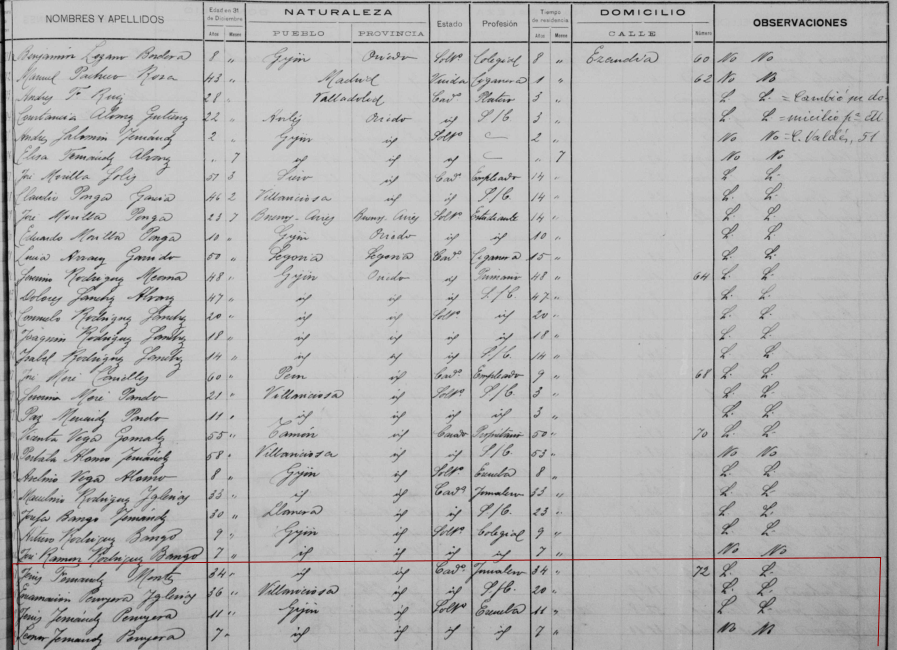 NOMBRES Y APELLIDOS Edad en 31 de Diciembre Años Meses NATURALEZA PUEBLO PROVINCIA Estado Profesión Tiempo de residencia Años Meses DOMICILIO CALLE Número OBSERVACIONES
Benjamin Lozano Bordera 8 " Gijón Oviedo Soltº Colegial 8 " Ezcurdia 60 No No
Manuel Pacheco Rosa 43 " Madrid Viuda Cigarrera 1 " 62 No No
Andres Fz Ruiz 28 " Valladolid Cadº Platero 3 " L. L. = Cambió su do-
Constancia Alonso 22 " Oviedo id S/C. 3 " L. L. = micilio pª
Andres Fernández 2 " Gijón id Soltº 2 " No No = C. Valdés, 51
Elisa Fernández Alvarez " 7 id id id " 7 No No
José Morilla Solis 51 3 id Cadº Empleado 14 " L. L.
Claudia Ponga Garcia 46 2 Villaviciosa id id S/C. 14 " L. L.
José Morilla Ponga 23 7 Buenos-Aires Buenos-Aires Soltº Estudiante 14 " L. L.
Eduardo Morilla Ponga 10 " Gijón Oviedo id id 10 " L. L.
Garrido 50 " Segovia Segovia Cadª Cigarrera 15 " L. L.
Rodriguez 48 " Gijón Oviedo id 48 " 64 L. L.
Dolores Sanchez Alvarez 47 " id id id S/C. 47 " L. L.
Consuelo Rodriguez Sanchez 20 " id id Soltª id 20 " L. L.
Joaquin Rodriguez Sanchez 18 " id id id id 18 " L. L.
Isabel Rodriguez Sanchez 14 " id id id S/C. 14 " L. L.
José Moré 60 " id Cadº Empleado 9 " 68 L. L.
Moré Pando 21 " Villaviciosa id Soltª S/C. 3 " L. L.
Paz Pando 11 " id id id id 3 " L. L.
Vicente Vega Gonzalez 55 " Tamón id Casado Propietario 50 " 70 L. L.
Alonso Fernández 58 " Villaviciosa id id S/C. 53 " No No
Avelino Vega Alonso 8 " Gijón id Soltº Escuela 8 " L. L.
Rodriguez Iglesias 33 " id id Cadº Jornalero 33 " L. L.
Josefa Bango Fernandez 30 " Llanera id id S/C. 23 " L. L.
Arturo Rodriguez Bango 9 " Gijón id Soltº Colegial 9 " L. L.
José Ramon Rodriguez Bango 7 " id id id id 7 " No No
Fernandez 34 " id id Cadº Jornalero 34 " 72 L. L.
Encarnación Iglesias 36 " Villaviciosa id id S/C. 20 " L. L.
Fernández 11 " Gijón id Soltº Escuela 11 " L. L.
Leonor Fernandez 7 " id id id id 7 " No No